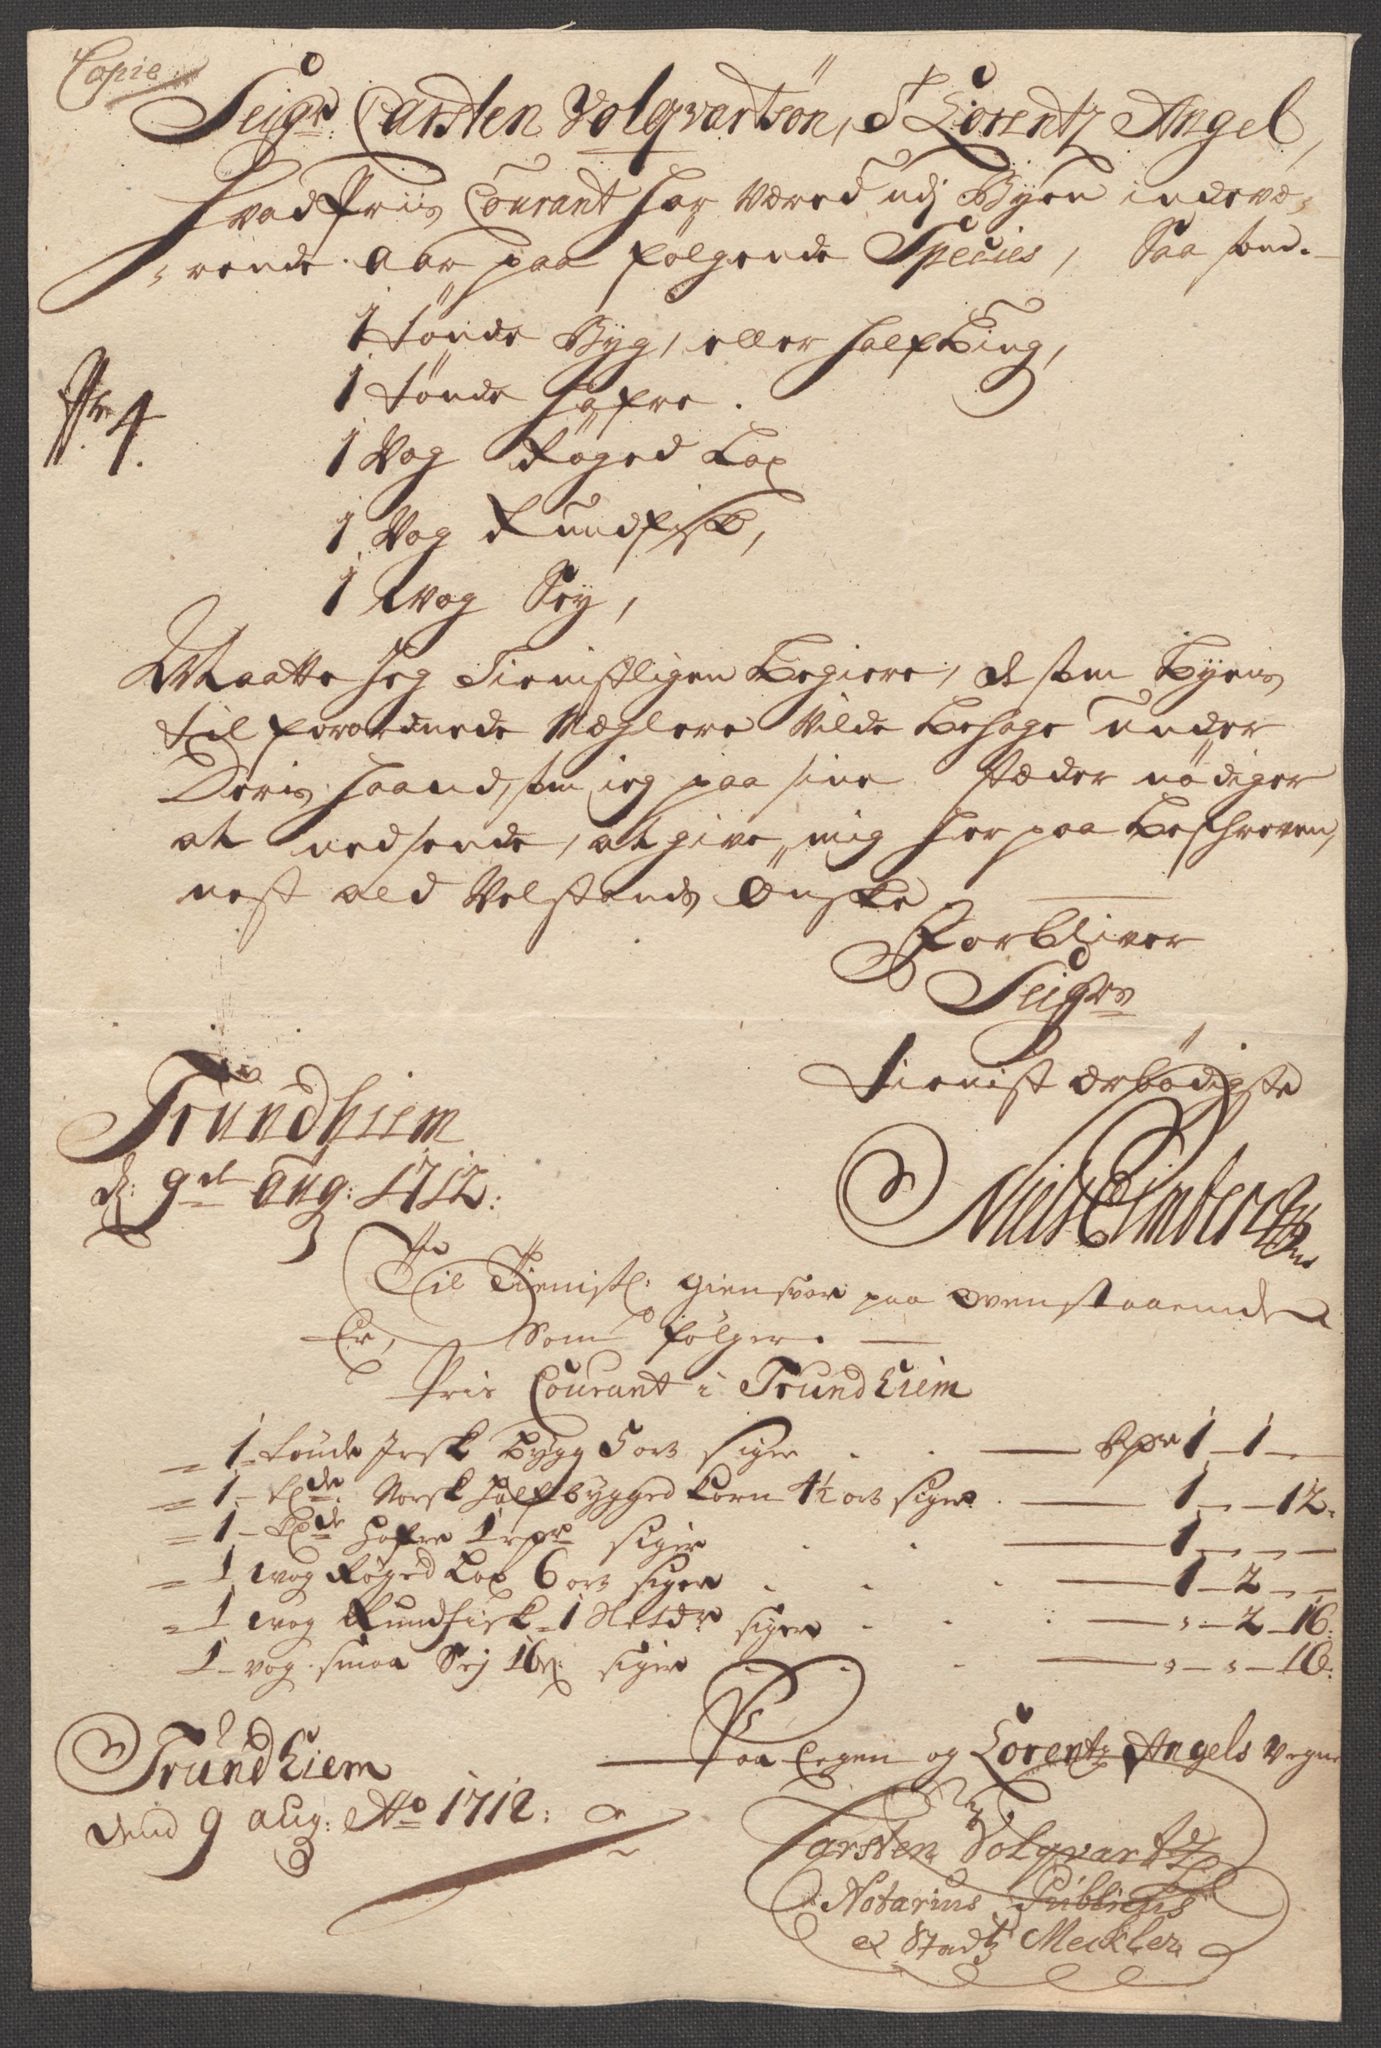 Copie
Seigr: Carsten Volqvartsön, Sr Lorentz Angel,
Hvad Priis Courant har Været udj Byen indevæ-
-rende Aar paa følgende Species, Saa som.
1 tønde Byg, eller halfbiug,
1 tønde hafre.
No 4.
1 Vog Røged Lax
1 Vog Rundfisk,
1 Wog Sey,
Maatte Jeg Tienistligen begiere, de som Byens
til forordnede Mæglere Vilde behage under
Deris haand, som ieg paa sine stæder nødiger
at nedsende, at give mig her paa beschreven,
nest ald Velstands Ønske
Forbliver
Seigrs
tienist ærbødigste
Trundhiem
d: 9de Aug: 1712:
Niels
Til Tienistl: giensvar paa ovenstaaende
Er, Som følger.
Pris Courant i Trundhiem
1 tønde Jrsk bygg 5 ort siger Rdr 1 – 1 –
1 – tønde Norsk halfbygged korn 4½ ort siger 1 – – 12.
1 – hafre 1 rdr siger 1 – – –
1 wog Røged Lax 6 ort siger 1 – 2 – –
1 wog Rundfisk 1 siger „ – 2 – 16:
1 – vog smaa Sej 16 s: siger „ – „ – 16:
Trundhiem
dend 9 aug: Ao 1712:
Paa Egen og Lorentz Angels Vegne
Carsten Volqvartz
Notarius Publicus
et Stadtz Meckler